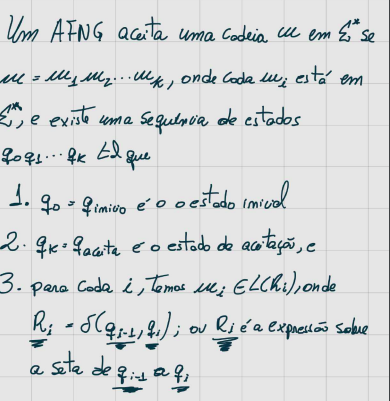 Um AFNG aceita uma cadeia w em Σ* se
w = w₁w₂...wₖ, onde cada wᵢ está em
Σ*, e existe uma sequência de estados
q₀q₁...qₖ tal que
1. q₀ = qinício é o o estado inicial
2. qₖ = qaceita é o estado de aceitação, e
3. para cada i, temos wᵢ ∈ L(Rᵢ), onde
Rᵢ = δ(qᵢ₋₁, qᵢ); ou Rᵢ é a expressão sobre
a seta de qᵢ₋₁ a qᵢ